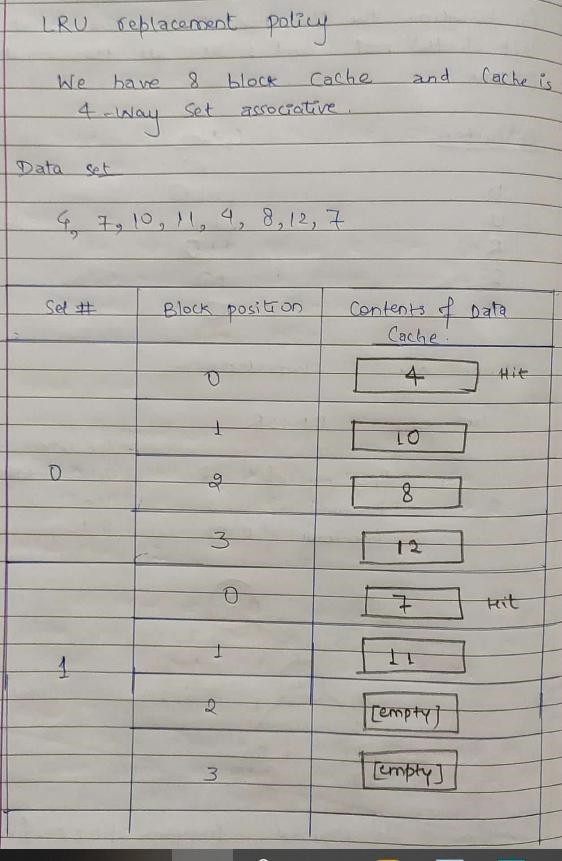 LRU replacement policy
We have 8 block Cache and Cache is
4-Way Set associative.
Data set
4, 7, 10, 11, 4, 8, 12, 7
Set # Block position Contents of Data
Cache.
0 4 Hit
1 10
0
2 8
3 12
0 7 Hit
1 11
1
2 [empty]
3 [empty]